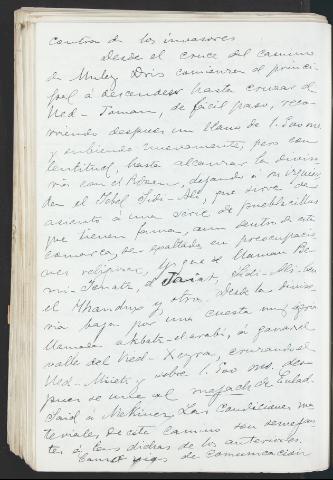 contra de los invasores
Desde el cruce del camino
de Muley Dris comienza el princi-
pal á descender hasta cruzar el
Ued-, de fácil paso, reco-
rriendo despues un llano de 1.500 m.
y subiendo nuevamente, pero con
lentitud, hasta alcanzar la diviso-
ria con el, dejando á su izquier-
da el Jebel Sidi-Ali, que sirve de
asiento á una serie de pueblecillos
que tienen fama, aun dentro de esta
comarca, de exaltados en preocupacio-
nes religiosas, y que se llaman Be-
ni-, Sidi-Ali-ben
el, y otros. Desde la diviso-
ria baja por una cuesta muy agria
llamada akbats-el-arabi, á ganar el
valle del Ued-, cruzando el
Ued- y sobre 1.500 ms. des-
pues se une al de Eulad-
Said á Mekinez. Las condiciones ma-
teriales de este camino son semejan-
tes á las dichas de los anteriores.
de comunicación